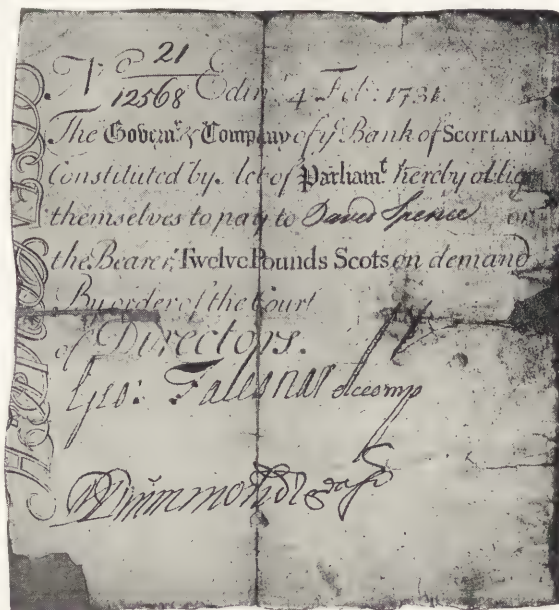 Nº 21
12568 Edinr 4 Febr: 1731.
The Governr & Company of ye Bank of SCOTLAND
Constituted by Act of Parliamt hereby oblige
themselves to pay to David Spence or
the Bearer, Twelve Pounds Scots on demand
By order of the Court
of Directors.
Geo: Falconar accomp
Drummond